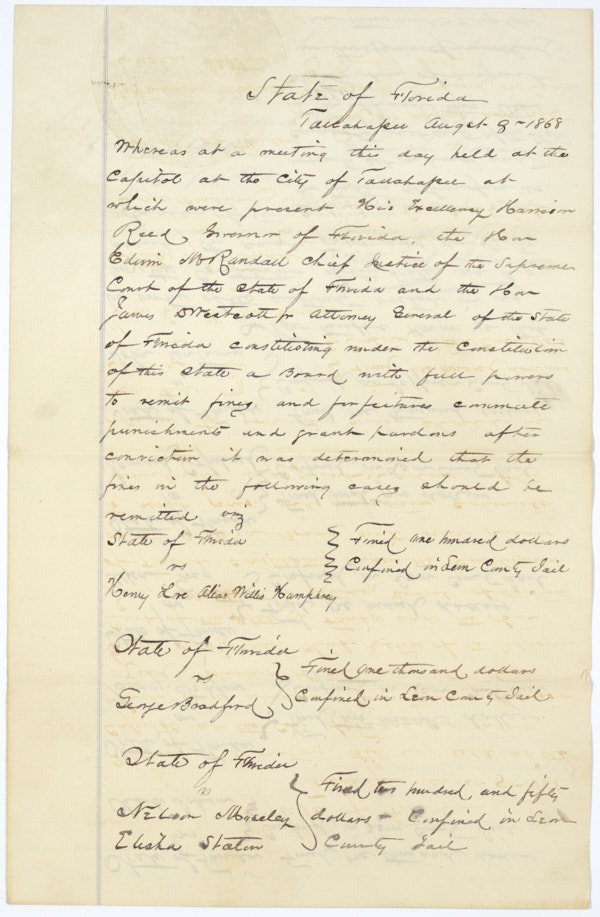 State of Florida
Tallahassee Augst 8th 1868
Whereas at a meeting this day held at the
Capitol at the City of Tallahassee at
which were present His Excellency Harrison
Reed, Governor of Florida, the Hon
Edwin M Randall Chief Justice of the Supreme
Court of the State of Florida and the Hon
James D Westcott jr Attorney General of the State
of Florida constituting under the Constitution
of this State a Board with full powers
to remit fines and forfeitures commute
punishments and grant pardons after
conviction it was determined that the
fines in the following cases should be
remitted viz
State of Florida } Fined one hundred dollars
vs } Confined in Leon County Jail
Henry Lee Alias Willis Humphrey
State of Florida
vs } Fined one thousand dollars
George Bradford } Confined in Leon County Jail
State of Florida
vs } Fined two hundred and fifty
Nelson Moseley } dollars - Confined in Leon
Elisha Staton } County Jail